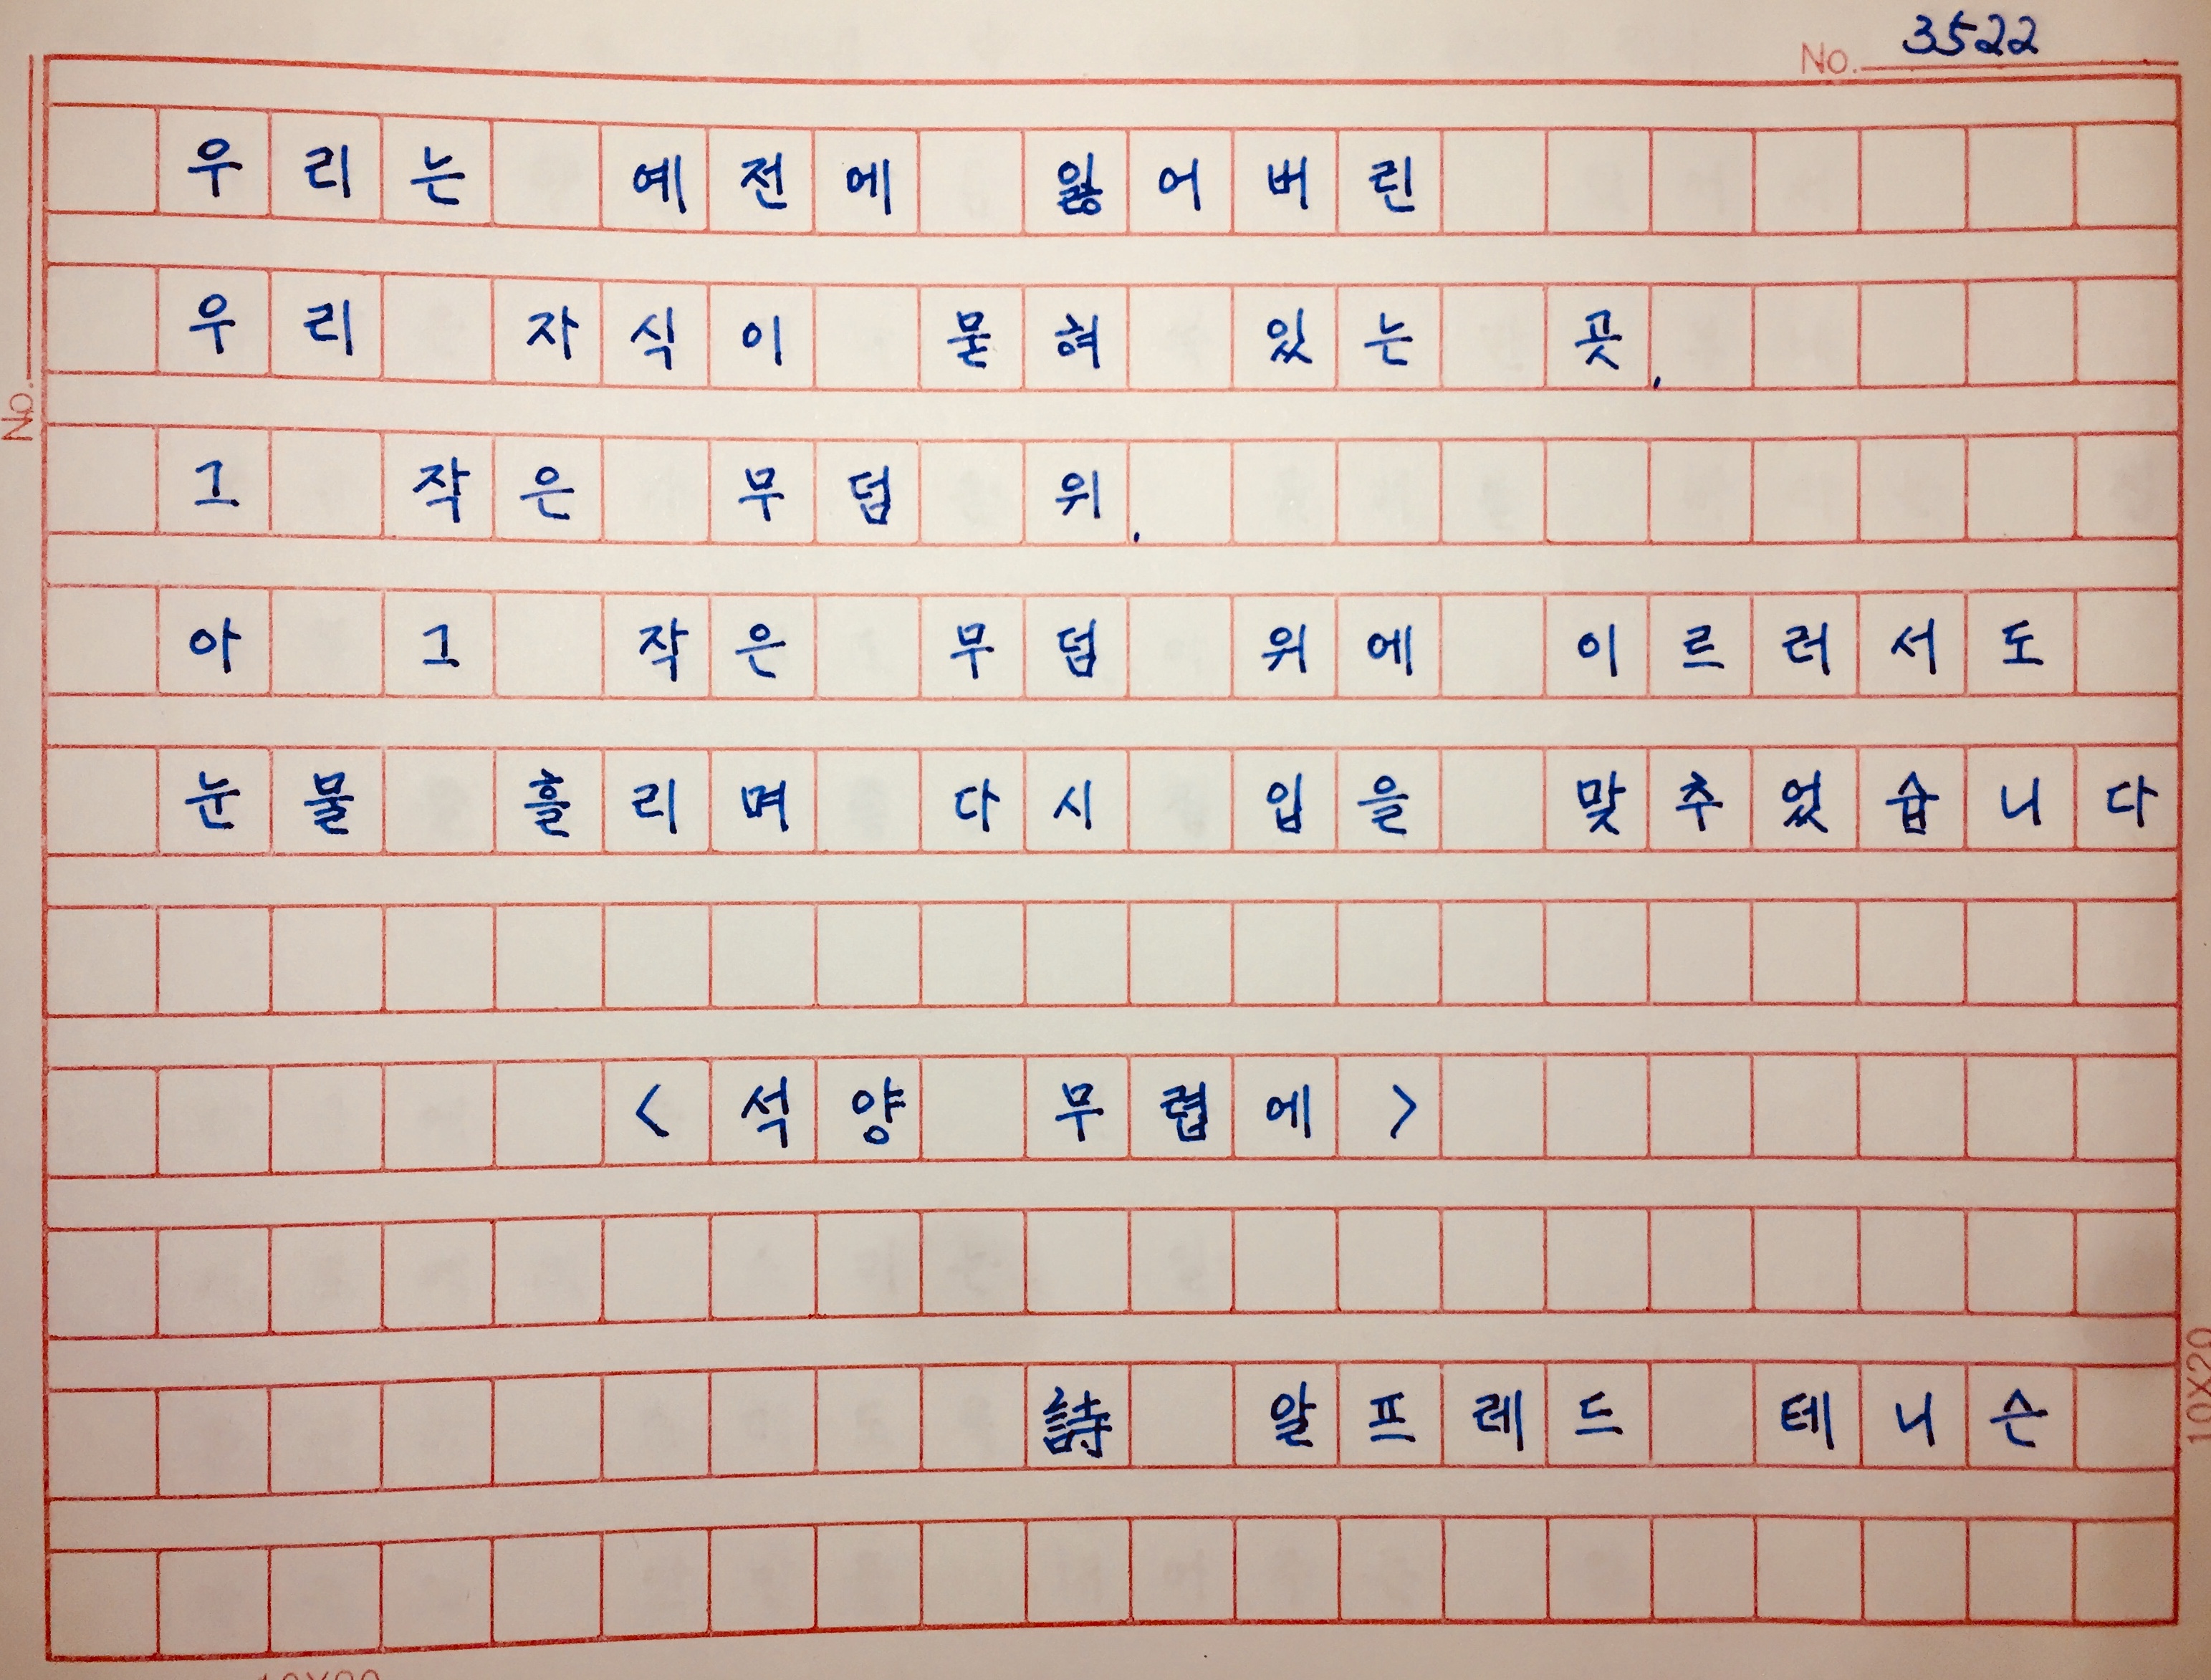 No. 3522
No.
우리는 예전에 잃어버린
우리 자식이 묻혀 있는 곳,
그 작은 무덤 위,
아 그 작은 무덤 위에 이르러서도
눈물 흘리며 다시 입을 맞추었습니다
<석양 무렵에>
詩 알프레드 테니슨
10X20
10X20